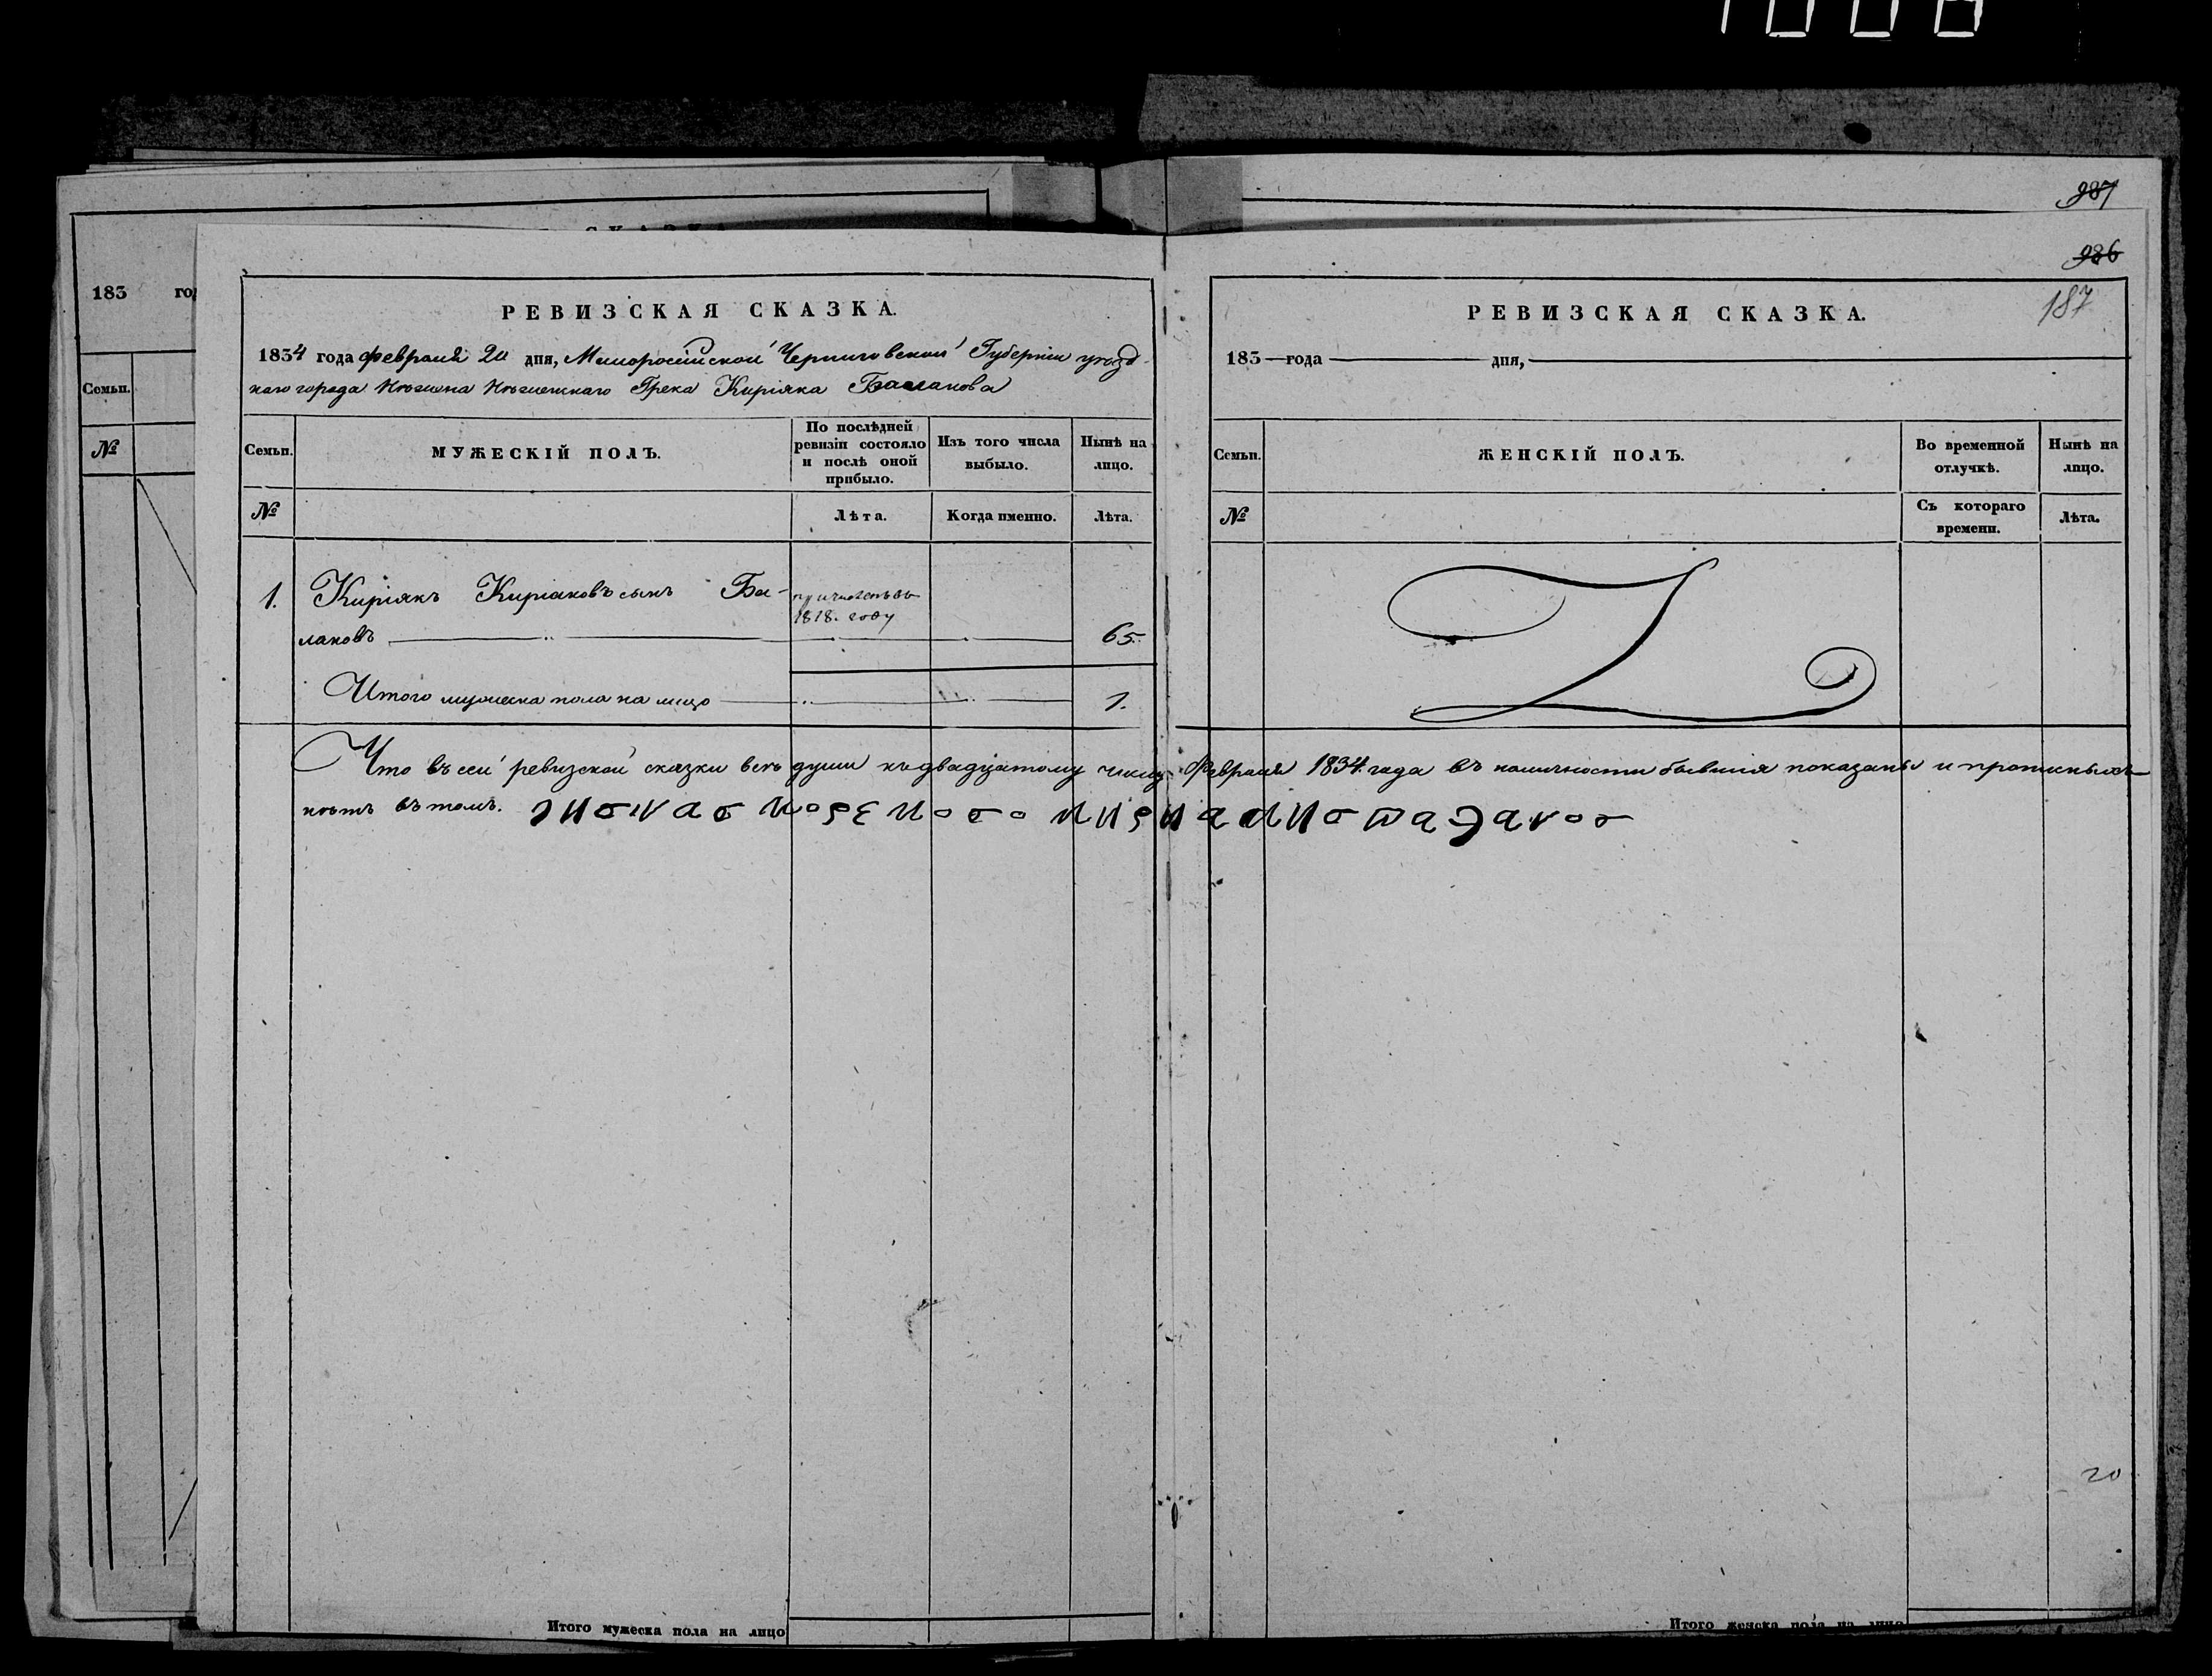 1008
987
986
187
183 го
Семьи.
№
РЕВИЗСКАЯ СКАЗКА.
1834 года февраля 20 дня, Малоросійской Черниговской Губерніи уѣзд
наго города Нѣжина Нѣжинскаго Грека Киріяка Балакова
Семьи.
МУЖЕСКІЙ ПОЛЪ.
По послѣдней ревизіи состояло и послѣ оной прибыло.
Изъ того числа выбыло.
Нынѣ на лицо.
№
Лѣта.
Когда именно.
Лѣта.
1. Киріякъ Киріаковъ сынъ Ба-
причисленъ въ
1818. году
лаковъ 65.
Итого мужеска пола на лицо 1.
РЕВИЗСКАЯ СКАЗКА.
183 года дня,
Семьи.
ЖЕНСКІЙ ПОЛЪ.
Во временной отлучкѣ.
Нынѣ на лицо.
№
Съ котораго времени.
Лѣта.
Что въ сей ревизской сказки всѣ души къ двадцатому числу Февраля 1834 года въ наличности бывшія показаны и прописныхъ
нѣтъ въ томъ.
20
Итого мужеска пола на лицо
Итого женска пола на лицо